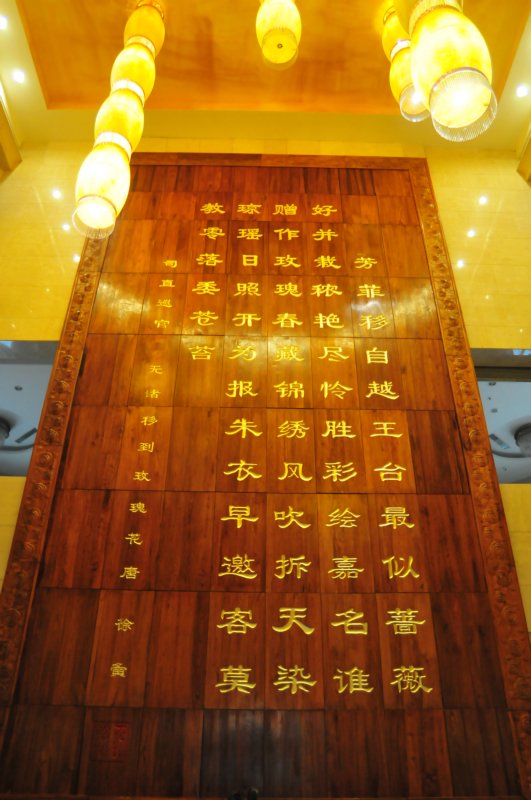 芳菲移自越王台最似蔷薇
好并栽秾艳尽怜胜彩绘嘉名谁
赠作玫瑰春藏锦绣风吹拆天染
琼瑶日照开为报朱衣早邀客莫
教零落委苍苔
司直巡官
无诸移到玫瑰花唐 徐夤